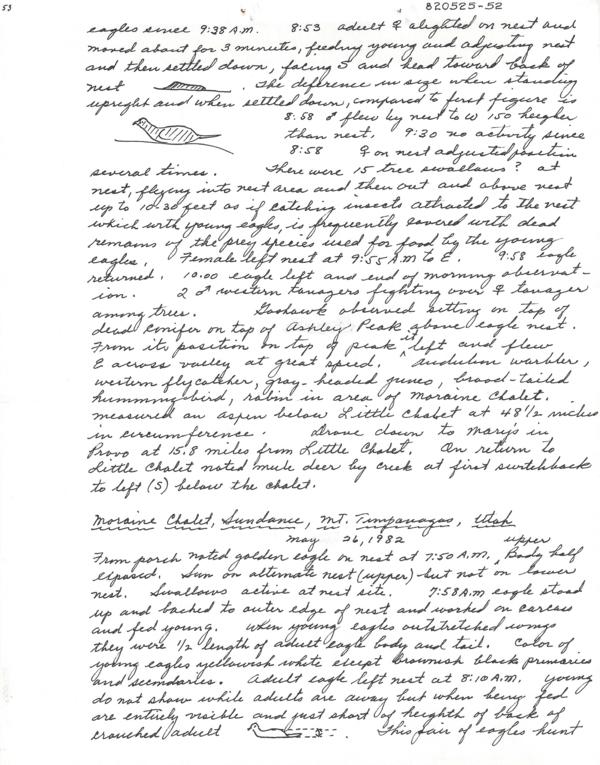 53
820525-52
eagles since 9:38 A.M. 8:53 adult ♀ alighted on nest and
moved about for 3 minutes, feeding young and adjusting nest
and then settled down, facing S and head toward back of
nest . The diference in size when standing
upright and when settled down, compared to first figure is
8:58 ♂ flew by nest to W 150 heigher
than nest. 9:30 no activity since
8:58 ♀ on nest adjusted position
several times. There were 15 tree swallows? at
nest, flying into nest area and then out and above nest
up to 10-30 feet as if catching insects attracted to the nest
which with young eagles, is frequently covered with dead
remains of the prey species used for food by the young
eagles. Female left nest at 9:55 A.M to E. 9:58 eagle
returned. 10:00 eagle left and end of morning observat-
ion. 2 ♂ western tanagers fighting over ♀ tanager
among trees. Goshawk observed sitting on top of
dead conifer on top of Ashley Peak above eagle nest.
From its position on top of peak it left and flew
E across valley at great speed. Audubon warbler,
western flycatcher, gray-headed junco, broad-tailed
humming-bird, robin in area of Moraine Chalet.
measured an aspen below Little Chalet at 48 1/2 inches
in circumference. Drove down to Mary's in
Provo at 15.8 miles from Little Chalet. On return to
Little Chalet noted mule deer by creek at first switchback
to left (S) below the chalet.
Moraine Chalet, Sundance, Mt. Timpanogas, Utah
May 26, 1982
From porch noted golden eagle on nest at 7:50 A.M. upper Body half
exposed. Sun on alternate nest (upper) but not on lower
nest. Swallows active at nest site. 7:58 A.M eagle stood
up and backed to outer edge of nest and worked on carcass
and fed young. When young eagles outstretched wings
they were 1/2 length of adult eagle body and tail. Color of
young eagles yellowish white except brownish black primaries
and secondaries. Adult eagle left nest at 8:10 A.M. Young
do not show while adults are away but when being fed
are entirely visible and just short of heighth of back of
crouched adult . This pair of eagles hunt